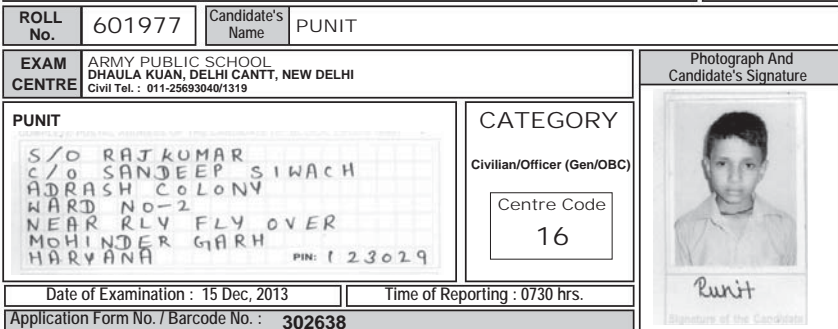 ROLL No. 601977 Candidate's Name PUNIT
EXAM CENTRE ARMY PUBLIC SCHOOL
DHAULA KUAN, DELHI CANTT, NEW DELHI
Civil Tel. : 011-25693040/1319
Photograph And
Candidate's Signature
PUNIT
S/O RAJKUMAR
C/O SANDEEP SIWACH
ADRASH COLONY
WARD NO-2
NEAR RLY FLY OVER
MOHINDER GARH
HARYANA PIN: 123029
CATEGORY
Civilian/Officer (Gen/OBC)
Centre Code
16
Punit
Signature of the Candidate
Date of Examination : 15 Dec, 2013 Time of Reporting : 0730 hrs.
Application Form No. / Barcode No. : 302638